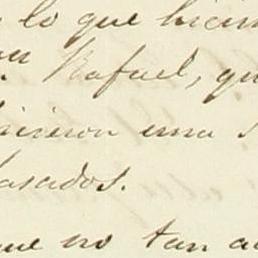 lo que hicim
Rafael, qu
hicieron una s
pasados.
que no tan a